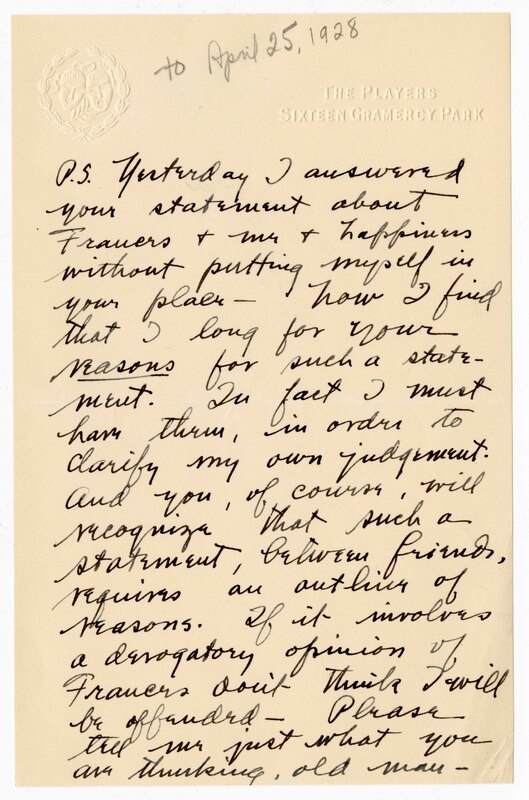 to April 25, 1928
THE PLAYERS
SIXTEEN GRAMERCY PARK
P.S. Yesterday I answered
your statement about
Frances + me + happiness
without putting myself in
your place — now I find
that I long for your
reasons for such a state-
ment. In fact I must
have them, in order to
clarify my own judgement.
And you, of course, will
recognize that such a
statement, between friends,
requires an outline of
reasons. If it involves
a derogatory opinion of
Frances don't think I will
be offended — Please
tell me just what you
are thinking, old man —